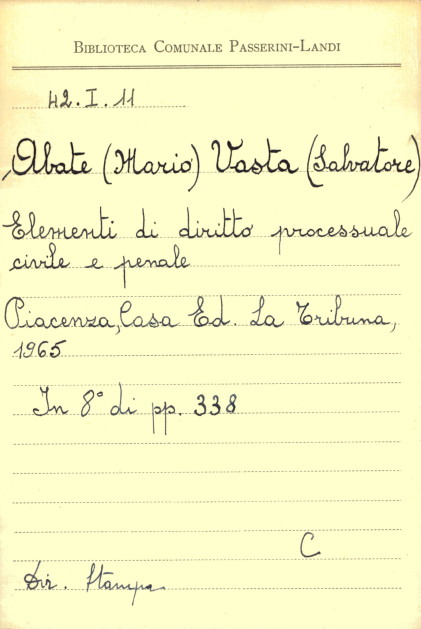 BIBLIOTECA COMUNALE PASSERINI-LANDI
42.I.11
Abate (Mario) Vasta (Salvatore)
Elementi di diritto processuale
civile e penale
Piacenza, Casa Ed. La Tribuna,
1965
In 8° di pp. 338
C
Dir. Stampa